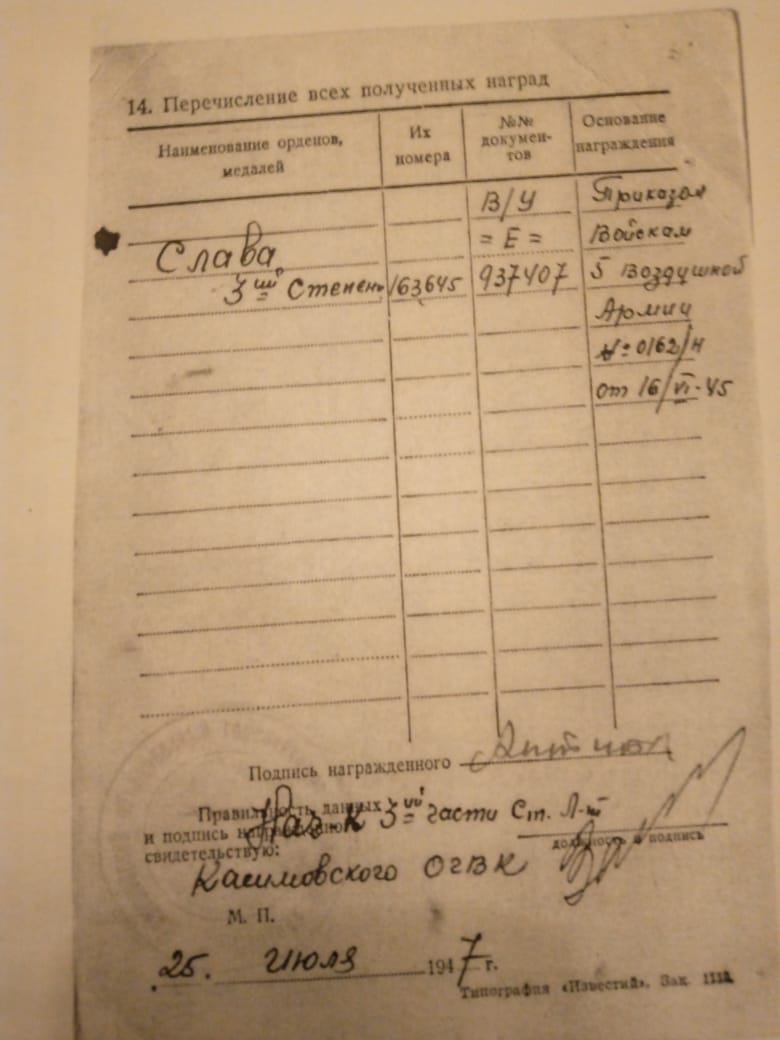 14. Перечисление всех полученных наград
Наименование орденов, медалей
Их номера
№№ докумен-тов
Основание награждения
В/У Приказом
= Е = Войскам
Слава
3ий Степени 163645 937407 5 Воздушной
Армии
№ 0162/н
от 16/VI-45
Подпись награжденного
Правильность данных
и подпись награжденного
свидетельствую:
Нач-к 3ий части Ст. Л-т
должность и подпись
Касимовского ОГВК
М. П.
25. Июля 1947 г.
Типография «Известий». Зак.